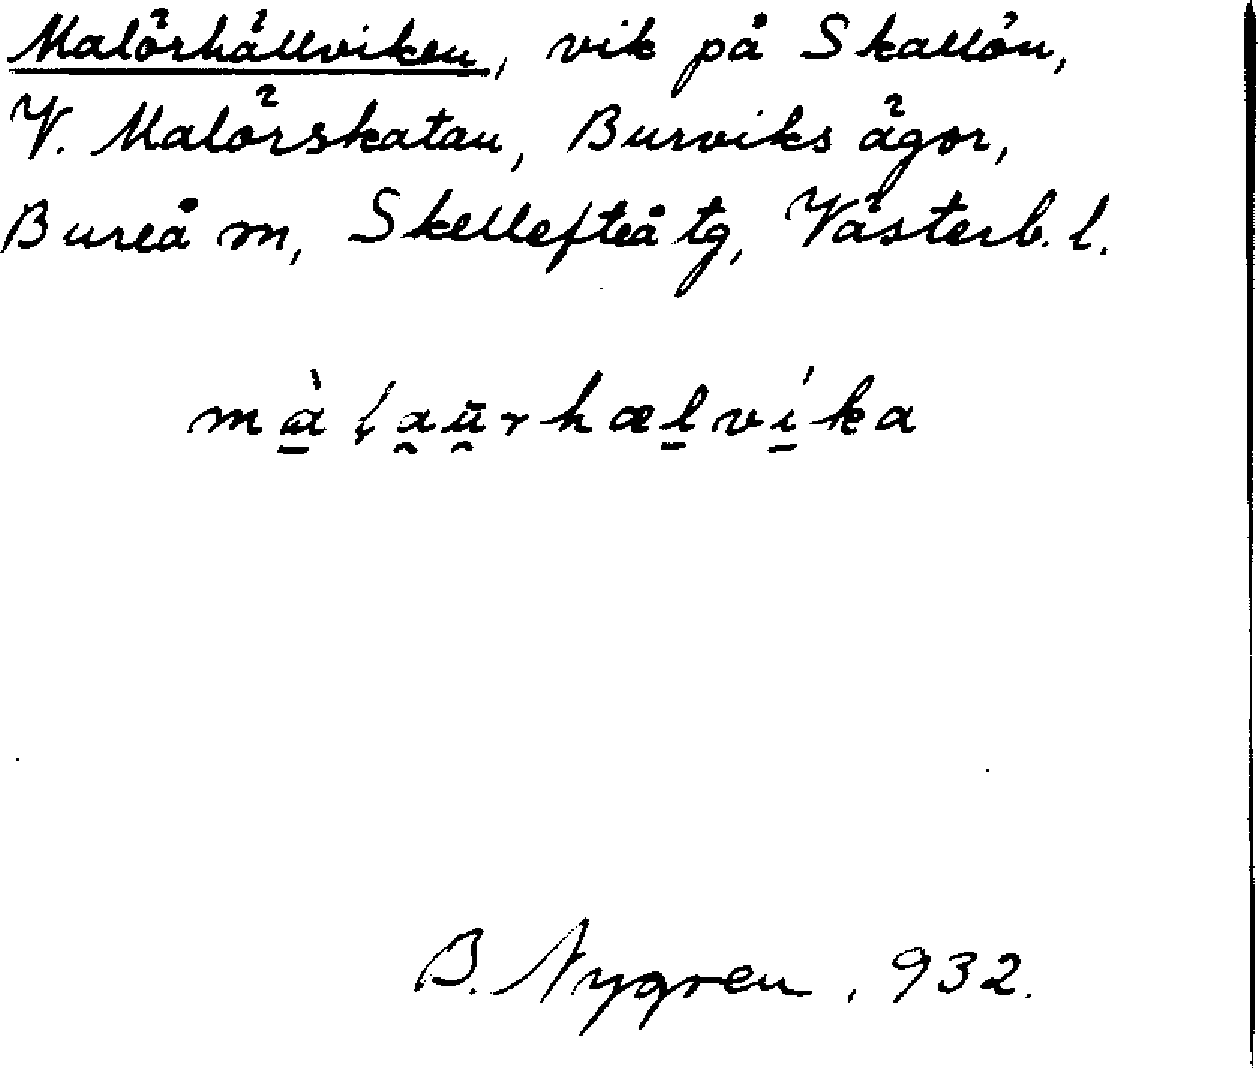 Malörhällviken, vik på Skallön,
V. Malörskatan, Burviks ägor,
Bureå m, Skellefteå tg, Västerb. l.
mà̱ḷa̯ū̯rhæḻví̱ka
B. Nygren, 932.